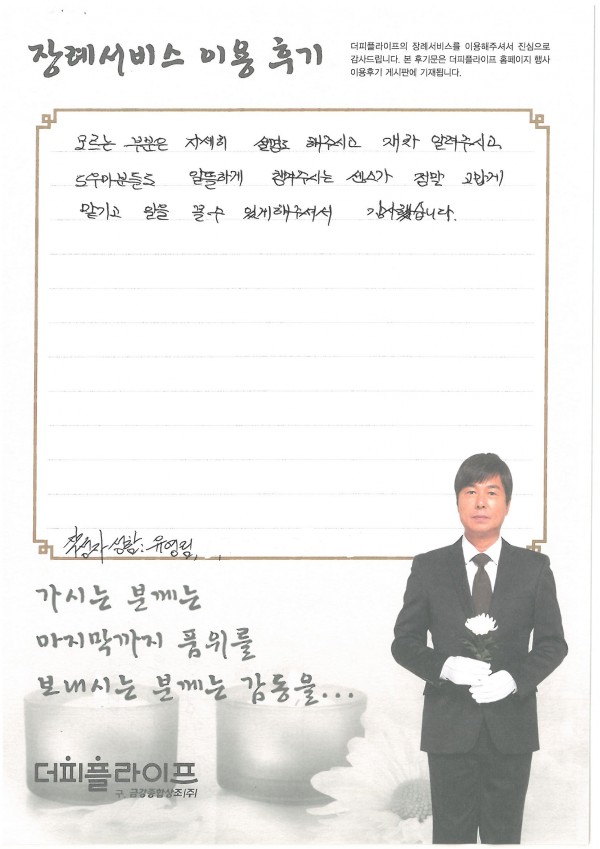 장례서비스 이용 후기
더피플라이프의 장례서비스를 이용해주셔서 진심으로
감사드립니다. 본 후기문은 더피플라이프 홈페이지 행사
이용후기 게시판에 기재됩니다.
모르는 부분은 자세히 설명도 해주시고 재차 알려주시고
도우미분들도 알뜰하게 챙겨주시는 센스가 정말 고맙게
맡기고 일을 볼수 있게해주셔서 감사했습니다.
작성자 성함: 유영림
가시는 분께는
마지막까지 품위를
보내시는 분께는 감동을...
더피플라이프
구. 금강종합상조(주)